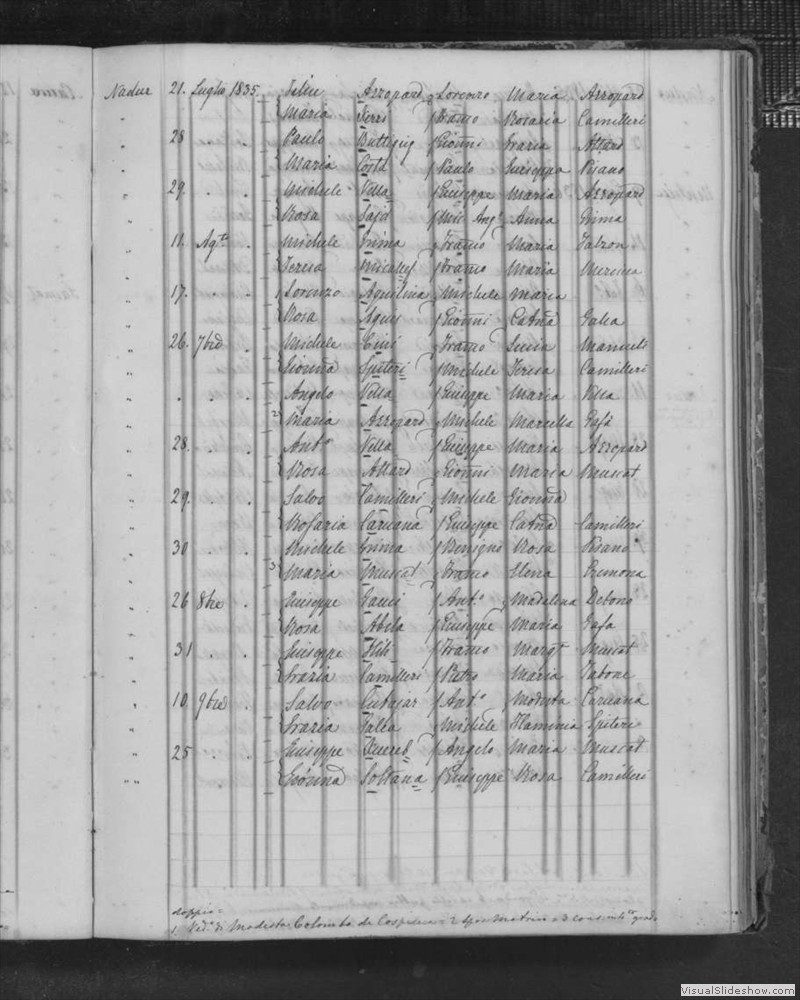 Nadur 21. Luglio 1835. Feliu Azzopard Lorenzo Maria Azzopard
Maria Ferri Franco Rosaria Camilleri
28 Paulo Buttigig Gionni Grazia Attard
Maria Costa Paulo Giuseppa Pisano
29. Michele Vella Giuseppe Maria Azzopard
Rosa Said Mic. Ang.o Anna Grima
11. Agto. Michele Grima Franco Maria Falzon
Teresa Micallef Franco Maria
17. Lorenzo Aquilina Michele Maria
Rosa Agius Gionni Catna Galea
26. 7bre Michele Cini Franco Lucia Manueli
Gionna Spiteri Michele Teresa Camilleri
Angelo Vella Giuseppe Maria Vella
2 Maria Azzopard Michele Marcella Gafà
28. Anto Vella Giuseppe Maria Azzopard
Rosa Attard Gionni Maria Muscat
29. Salvo Camilleri Michele Gionna
Rosaria Caruana Giuseppe Catna Camilleri
30 Michele Grima Benigno Rosa Pisano
3 Maria Muscat Franco Elena
26 8bre Giuseppe Anto Madalena Debono
Rosa Abela Giuseppe Maria Gafa
31 Giuseppe Hili Franco Margt Muscat
Grazia Camilleri Pietro Maria Tabone
10. 9bre Salvo Cutajar Anto Modesta Caruana
Grazia Galea Michele Flaminia Spiteri
25 Giuseppe Xuereb Angelo Maria Muscat
Gionna Soltana Giuseppe Rosa Camilleri
doppia
1. Ved.o di Modesta Colomba da Cospicua = 2 3 grado
VisualSlideshow.com